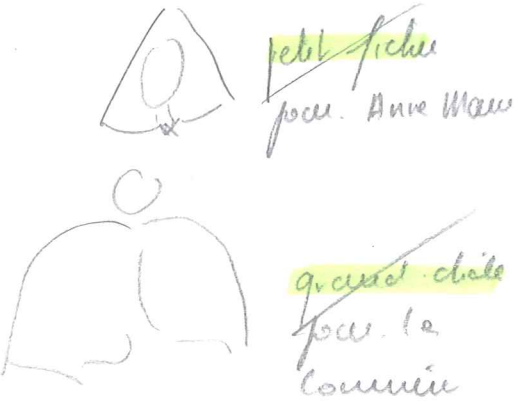 petit fichu
pour Anne Marie
grand châle
pour la
Commère